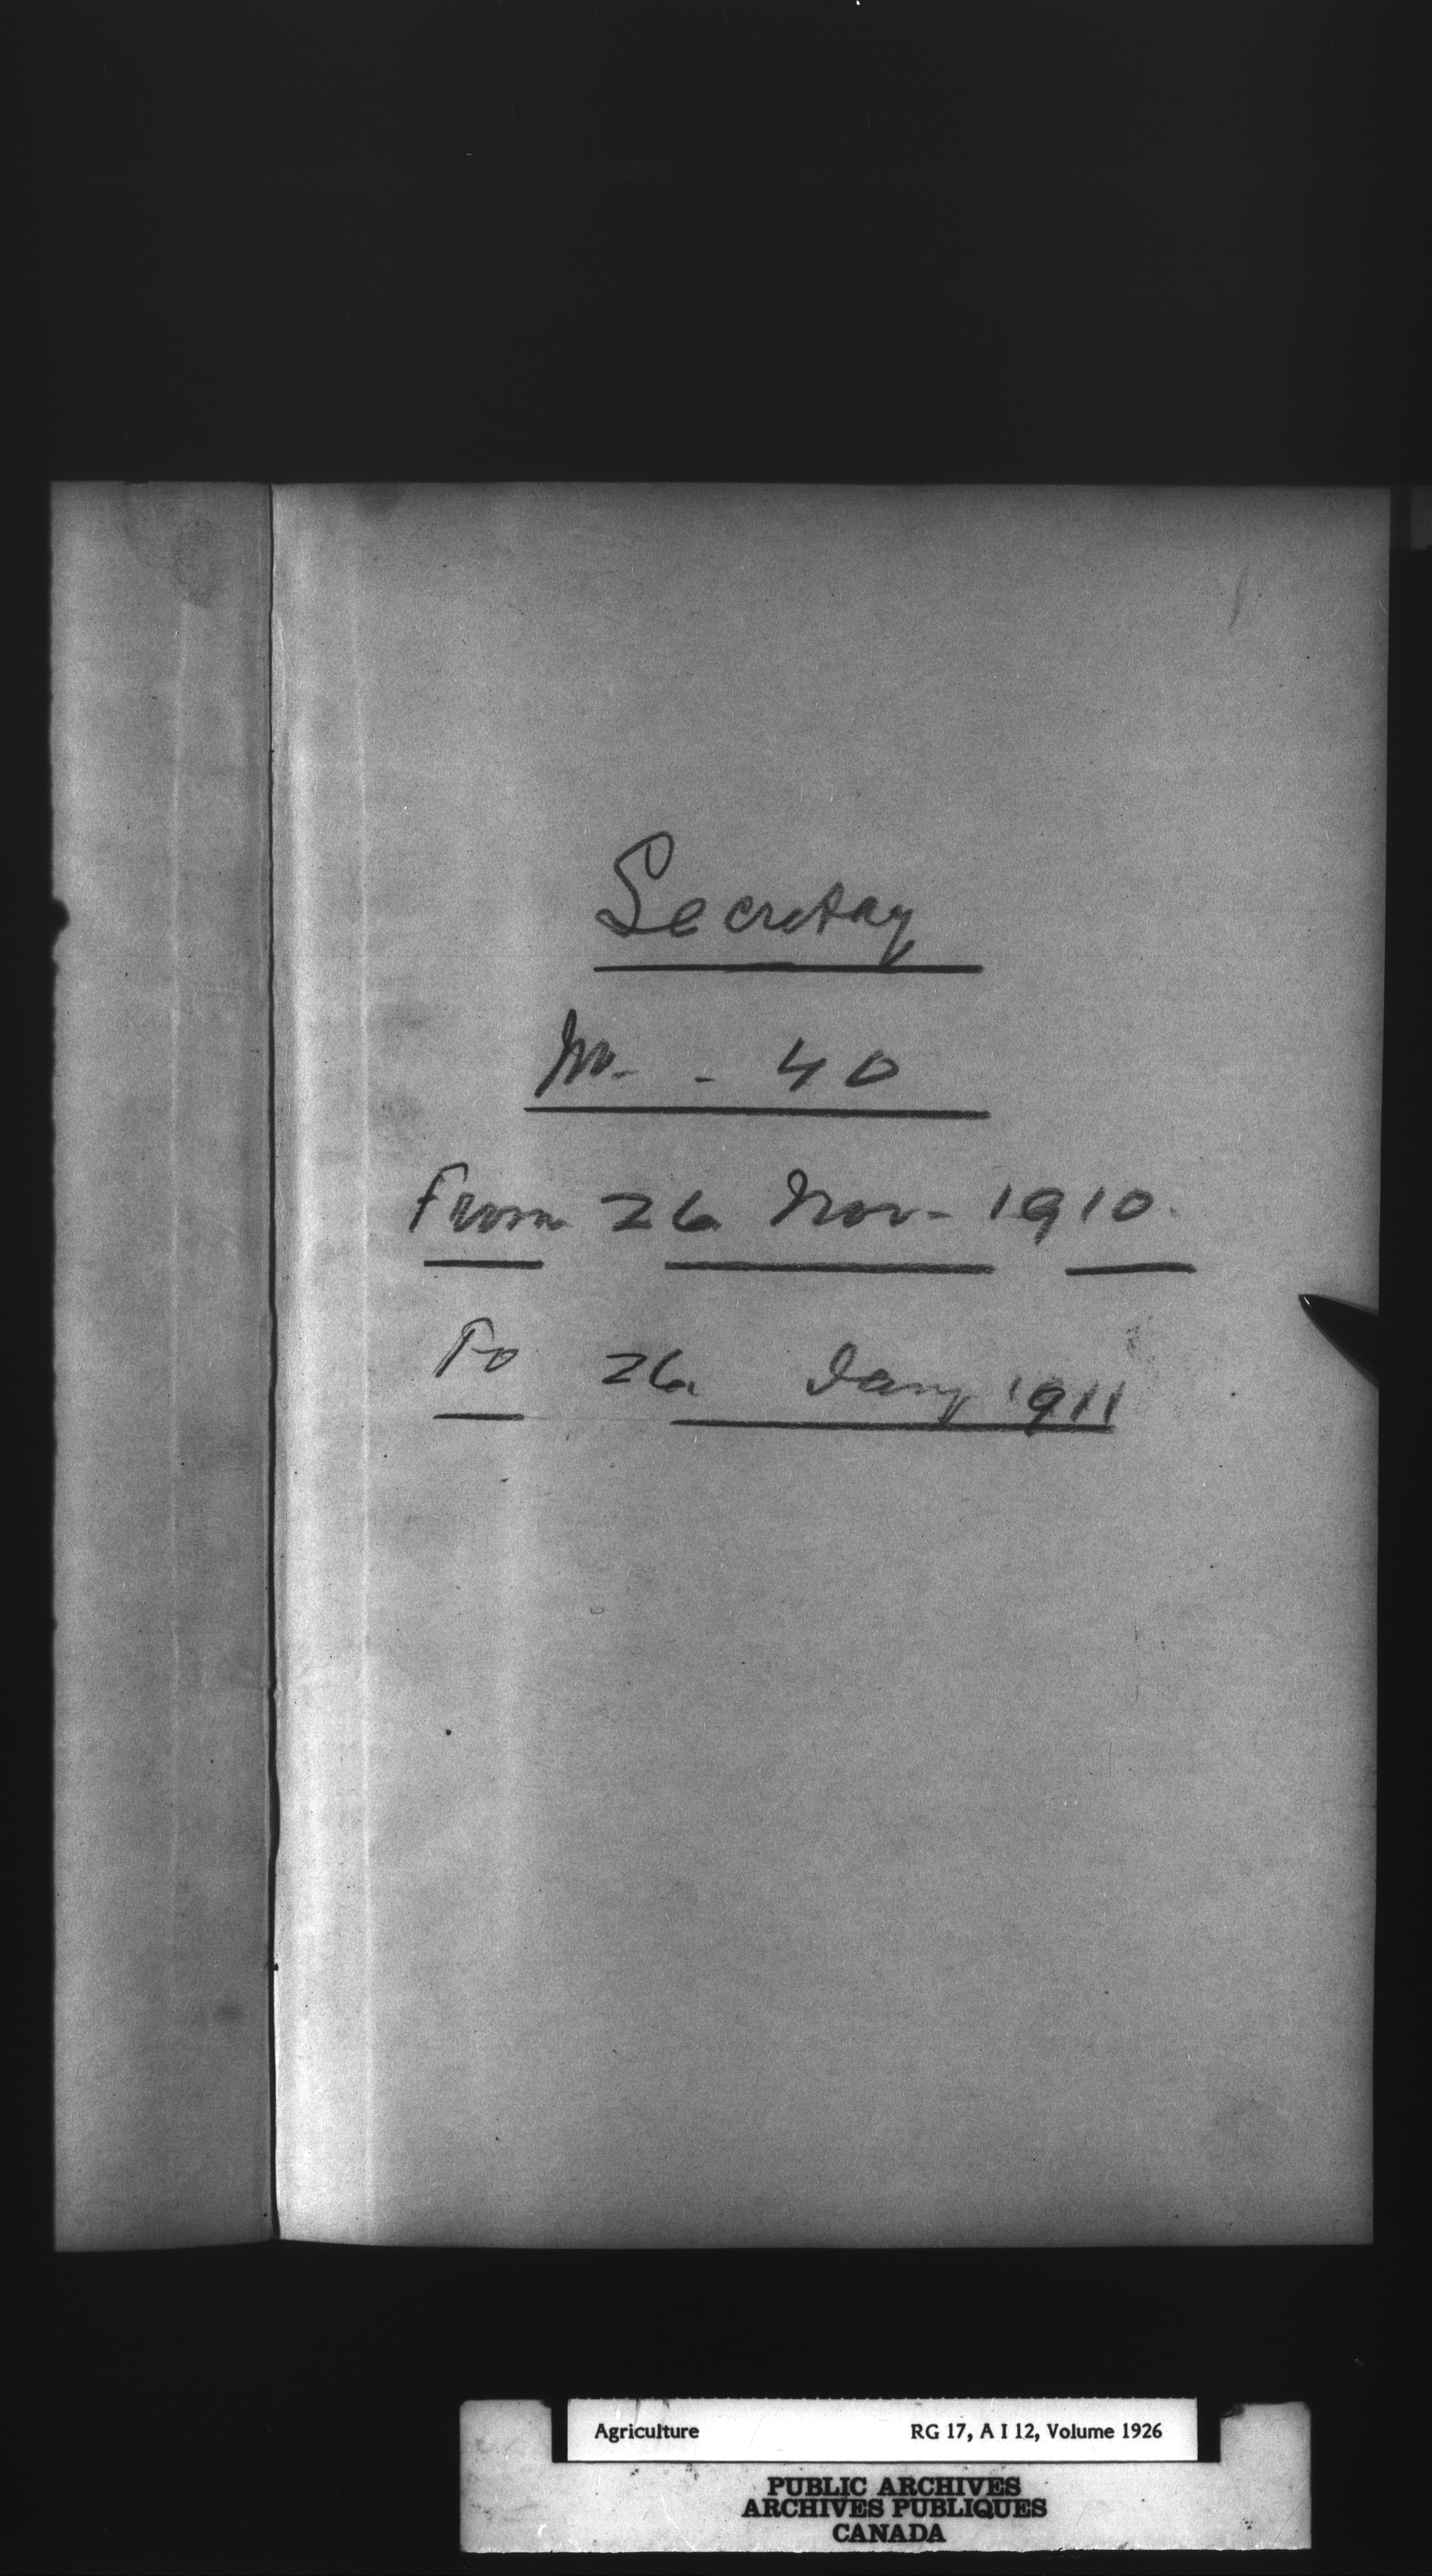 Secretary
No. - 40
From 26 Nov - 1910
To 26 Jany 1911
Agriculture RG 17, A I 12, Volume 1926
PUBLIC ARCHIVES
ARCHIVES PUBLIQUES
CANADA